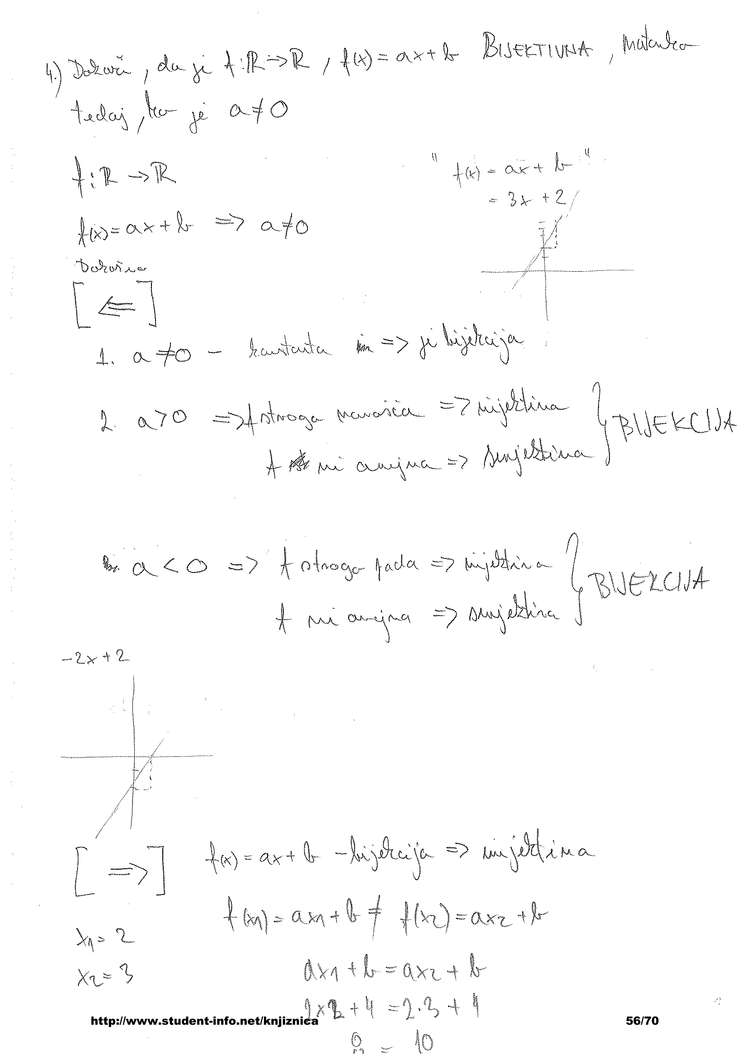 4.) Dokaži, da je f: ℝ → ℝ, f(x) = ax + b BIJEKTIVNA, natanko
tedaj, ko je a ≠ 0
f: ℝ → ℝ
f(x) = ax + b => a ≠ 0
" f(x) = ax + b "
= 3x + 2
[ <= ]
1. a ≠ 0 - konstanta => je bijekcija
2. a > 0 => f strogo narašča => injektivna
f ni omejena => surjektivna
} BIJEKCIJA
a < 0 => f strogo pada => injektivna
f ni omejena => surjektivna
} BIJEKCIJA
-2x + 2
[ => ]
f(x) = ax + b - bijekcija => injektivna
f(x1) = ax1 + b ≠ f(x2) = ax2 + b
x1 = 2
x2 = 3
ax1 + b = ax2 + b
+ 4 = 2·3 + 4
= 10
http://www.student-info.net/knjiznica
56/70